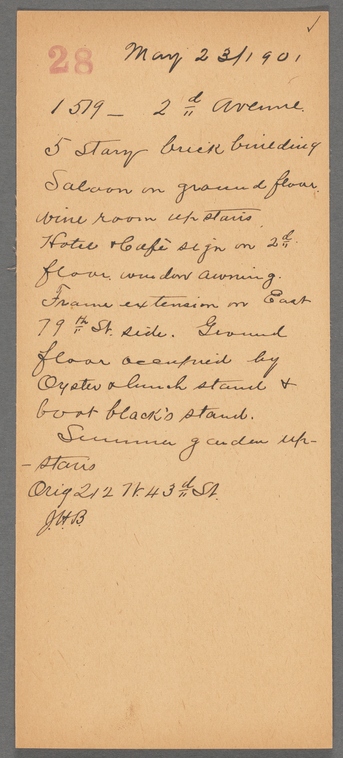 ✓
28 May 23/1901
1519 - 2d Avenue.
5 Story brick building
Saloon on ground floor,
wine room upstairs.
Hotel & Café sign on 2d
floor window awning.
Frame extension on East
79th St. side. Ground
floor occupied by
Oyster & lunch stand &
boot black's stand.
Summer garden up-
-stairs
Orig 212 W. 43d St.
J.H.B.